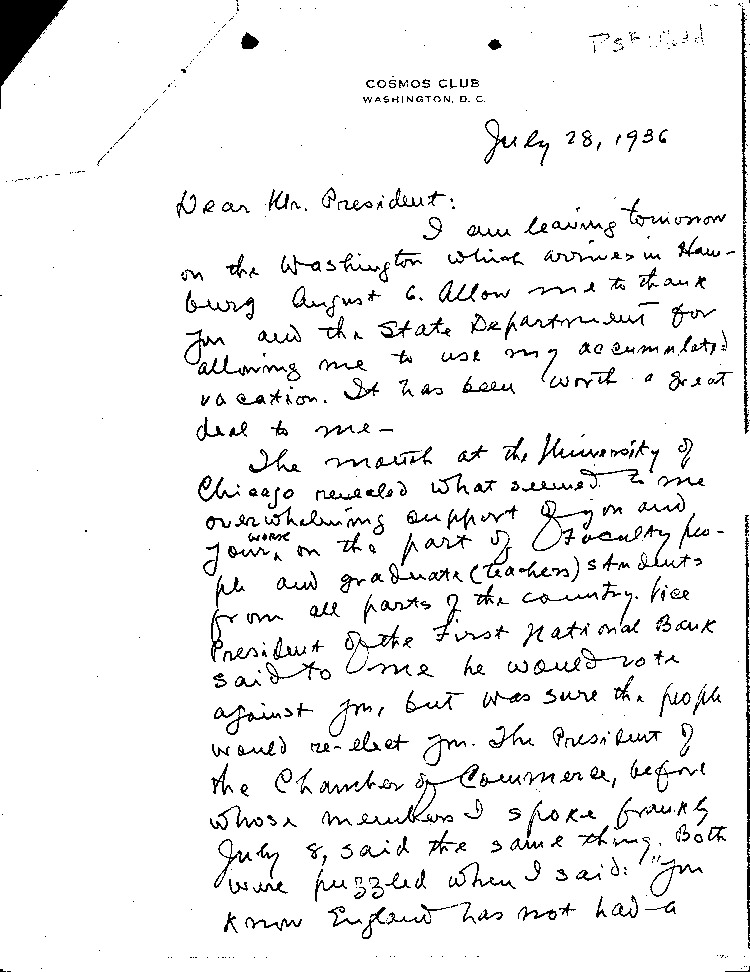 PSF
COSMOS CLUB
WASHINGTON, D. C.
July 28, 1936
Dear Mr. President:
I am leaving tomorrow
on the Washington which arrives in Ham-
burg August 6. Allow me to thank
you and the State Department for
allowing me to use my accumulated
vacation. It has been worth a great
deal to me-
The month at the University of
Chicago revealed what seemed to me
overwhelming support of you and
your work on the part of Faculty peo-
ple and graduate (teachers) students
from all parts of the country. Vice
President of the First National Bank
said to me he would vote
against you, but was sure the people
would re-elect you. The President of
the Chamber of Commerce, before
whose members I spoke frankly
July 8, said the same thing. Both
were puzzled when I said: "you
know England has not had a